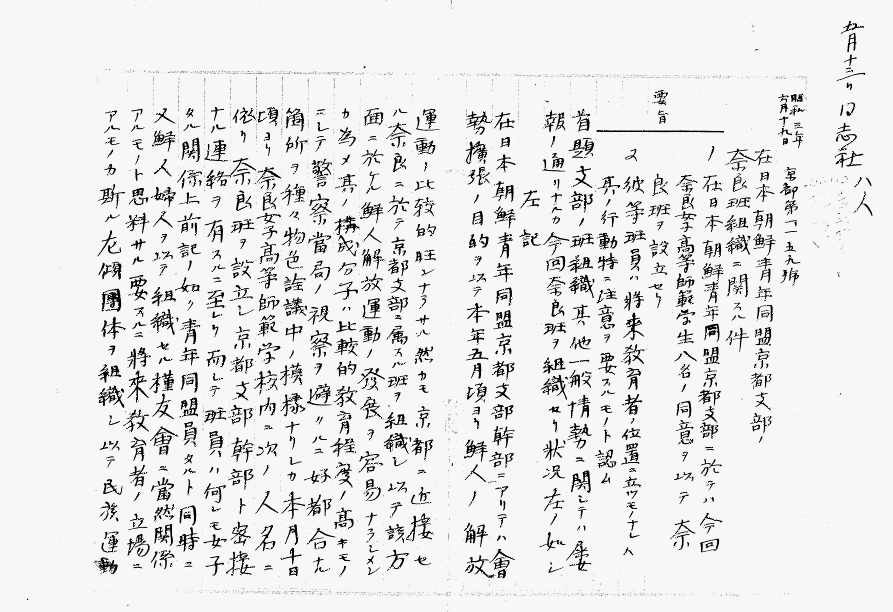 五月十三日 同志社 八人
昭和三年
六月十九日
京都第一一五九號
在日本朝鮮青年同盟京都支部ノ
奈良班組織ニ関スル件
要旨
1 在日本朝鮮青年同盟京都支部ニ於テハ今回
奈良女子高等師範学生八名ノ同意ヲ以テ奈
良班ヲ設立セリ
2 彼等班員ハ将来教育者ノ位置ニ立ツモノナレハ
其ノ行動特ニ注意ヲ要スルモノト認ム
首題支部ノ班組織其他一般情勢ニ関シテハ屡
報ノ通リナルカ今回奈良班ヲ組織セリ状況左ノ如シ
左記
在日本朝鮮青年同盟京都支部幹部ニアリテハ會
勢擴張ノ目的ヲ以テ本年五月頃ヨリ鮮人ノ解放
運動ノ比較的旺ンナラサル然カモ京都ニ近接セ
ル奈良ニ於テ京都支部ニ属スル班ヲ組織シ以テ該方
面ニ於ケル鮮人解放運動ノ発展ヲ容易ナラシメン
カ為メ其ノ構成分子ハ比較的教育程度ノ高キモノ
ニシテ警察當局ノ視察ヲ避クルニ好都合ナル
箇所ヲ種々物色詮議中ノ模様ナリシカ本月十日
頃ヨリ奈良女子高等師範学校内ニ次ノ人名ニ
依リ奈良班ヲ設立シ京都支部幹部ト密接
ナル連絡ヲ有スルニ至レリ而シテ班員ハ何レモ女子
タル関係上前記ノ如ク青年同盟員タルト同時ニ
又鮮人婦人ヲ以テ組織セル槿友會ニ當然関係
アルモノト思料サル要スルニ将来教育者ノ立場ニ
アルモノカ斯ル左傾團体ヲ組織シ以テ民族運動